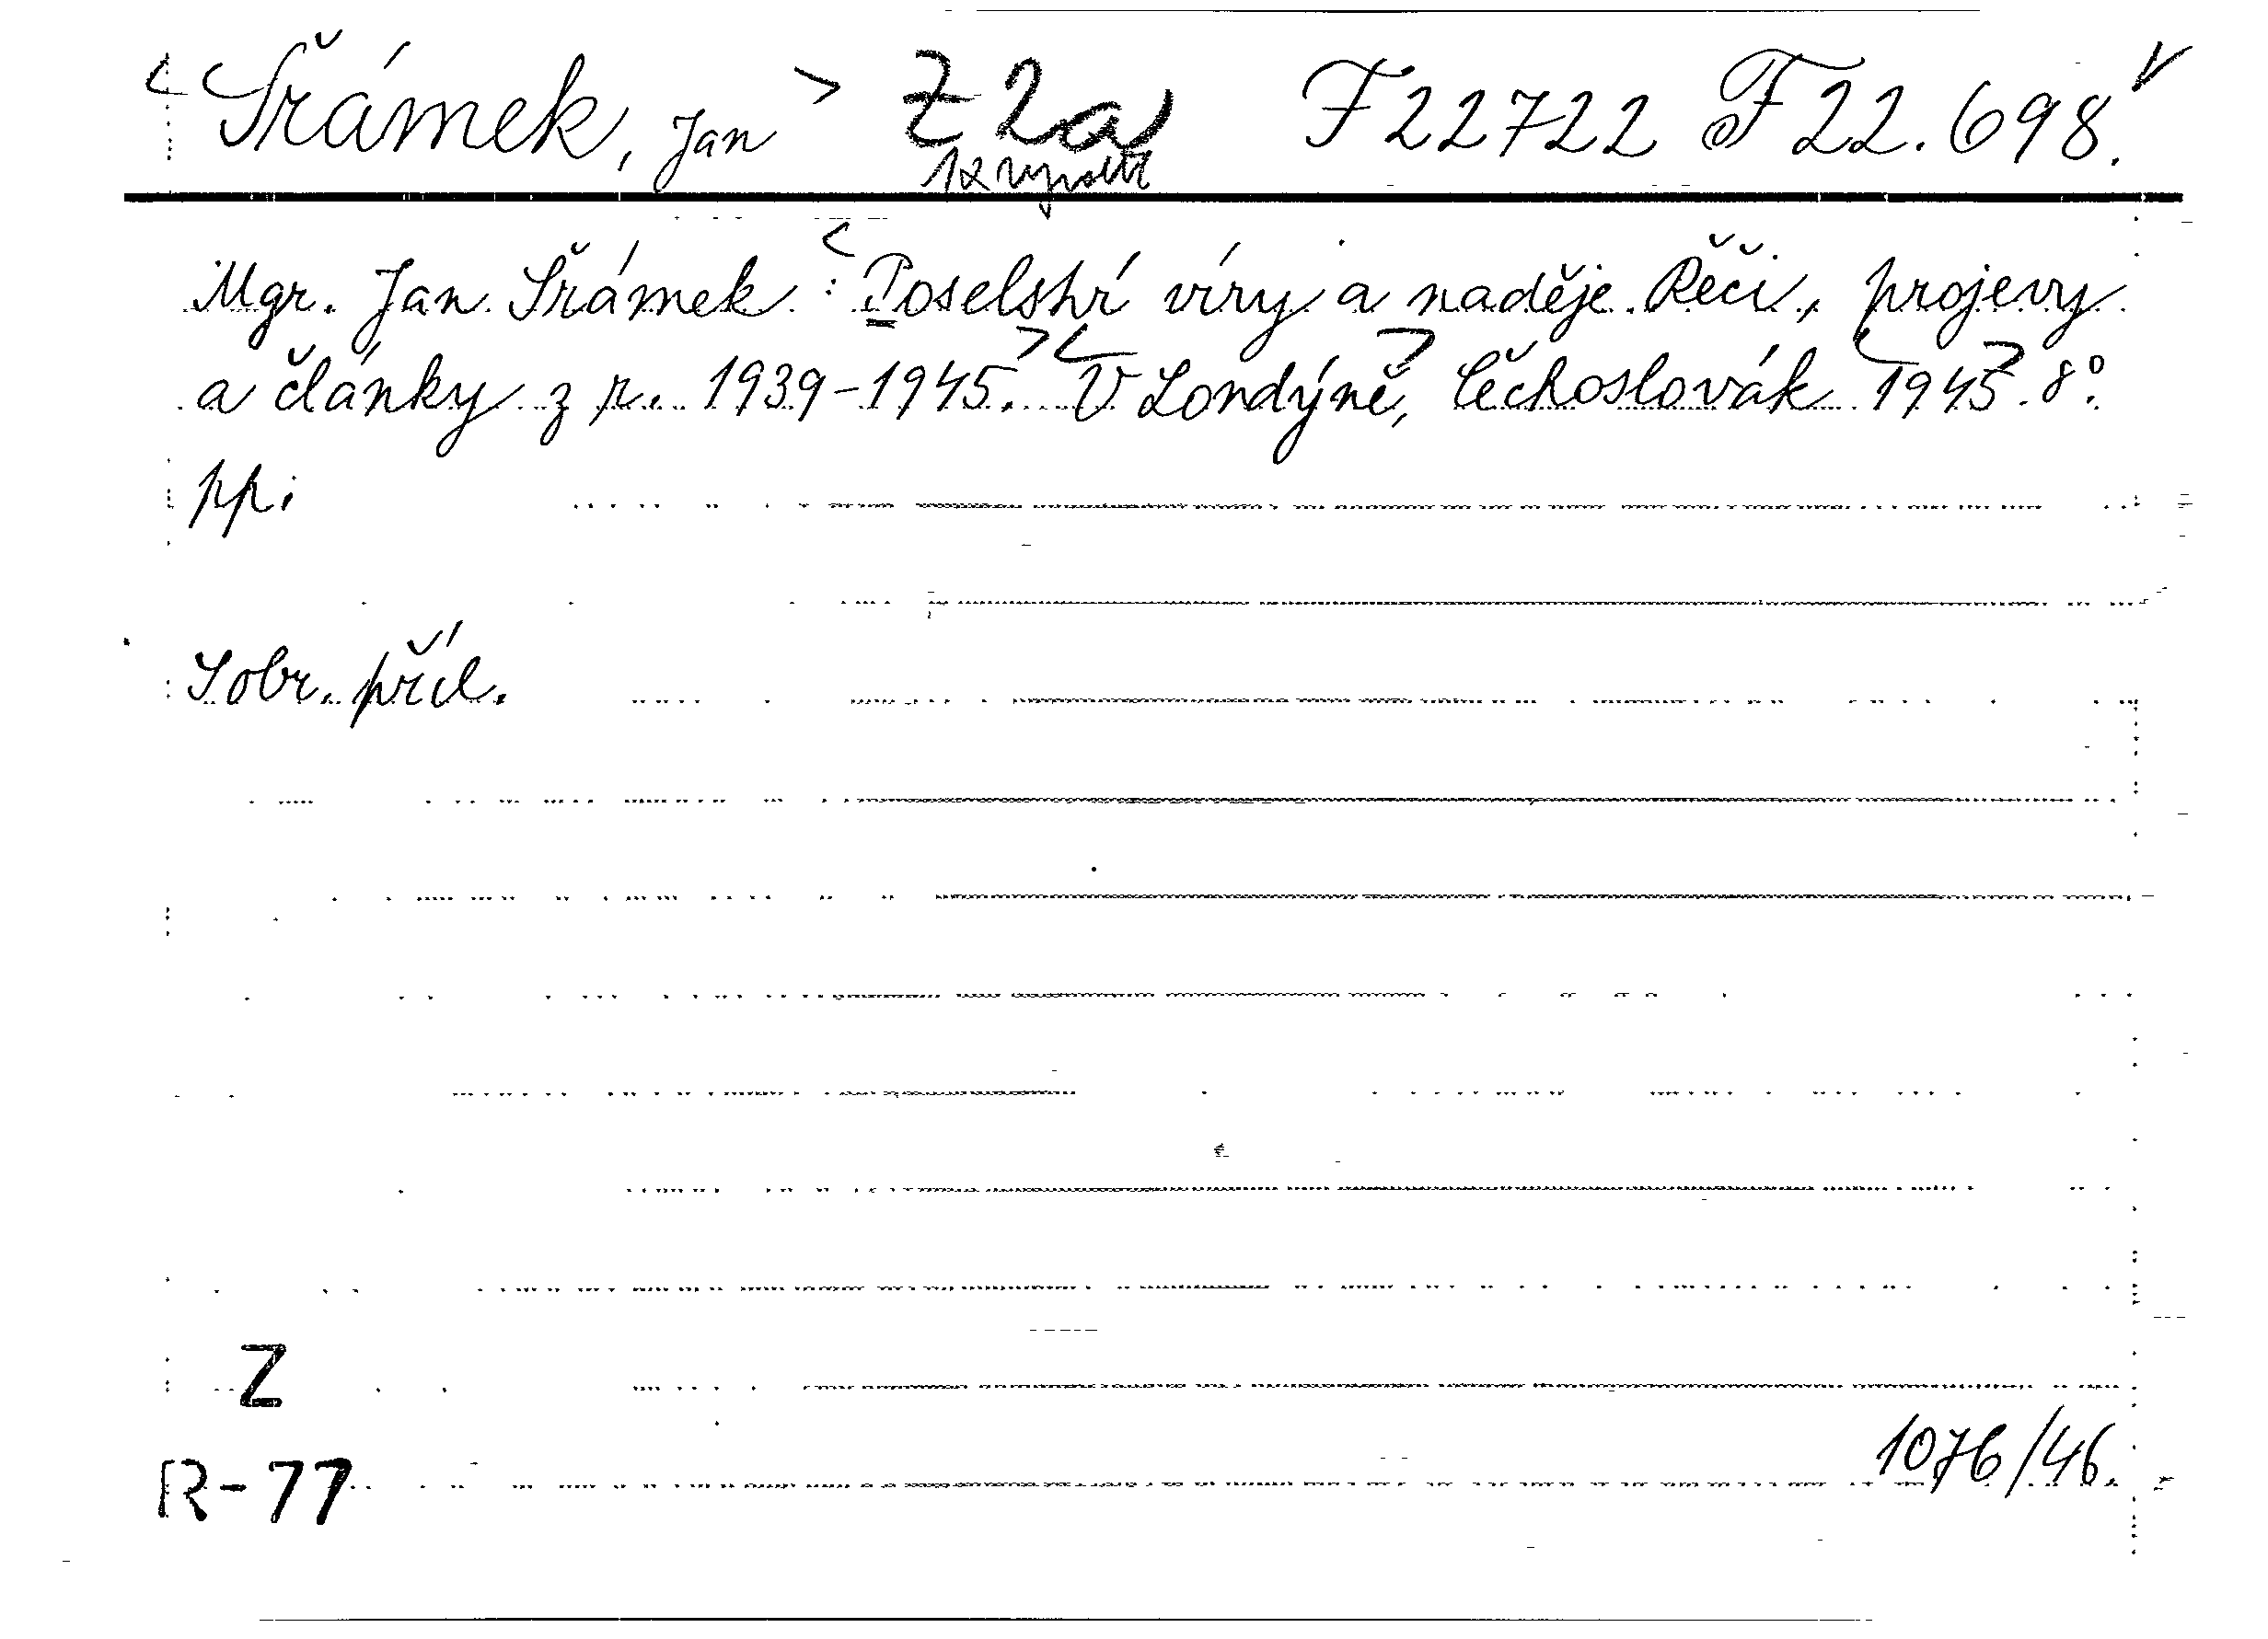 < Šrámek, Jan > Z 2a F 22722 F 22.698.
1x
Mgr. Jan Šrámek: Poselství víry a naděje. Řeči, projevy
a články z r. 1939-1945. V Londýně, Čechoslovák 1945. 8°.
pp.
S obr. příl.
Z
R-77
1076/46.